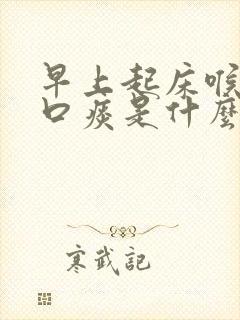 早上起床喉
口痰是什麼
寒武記